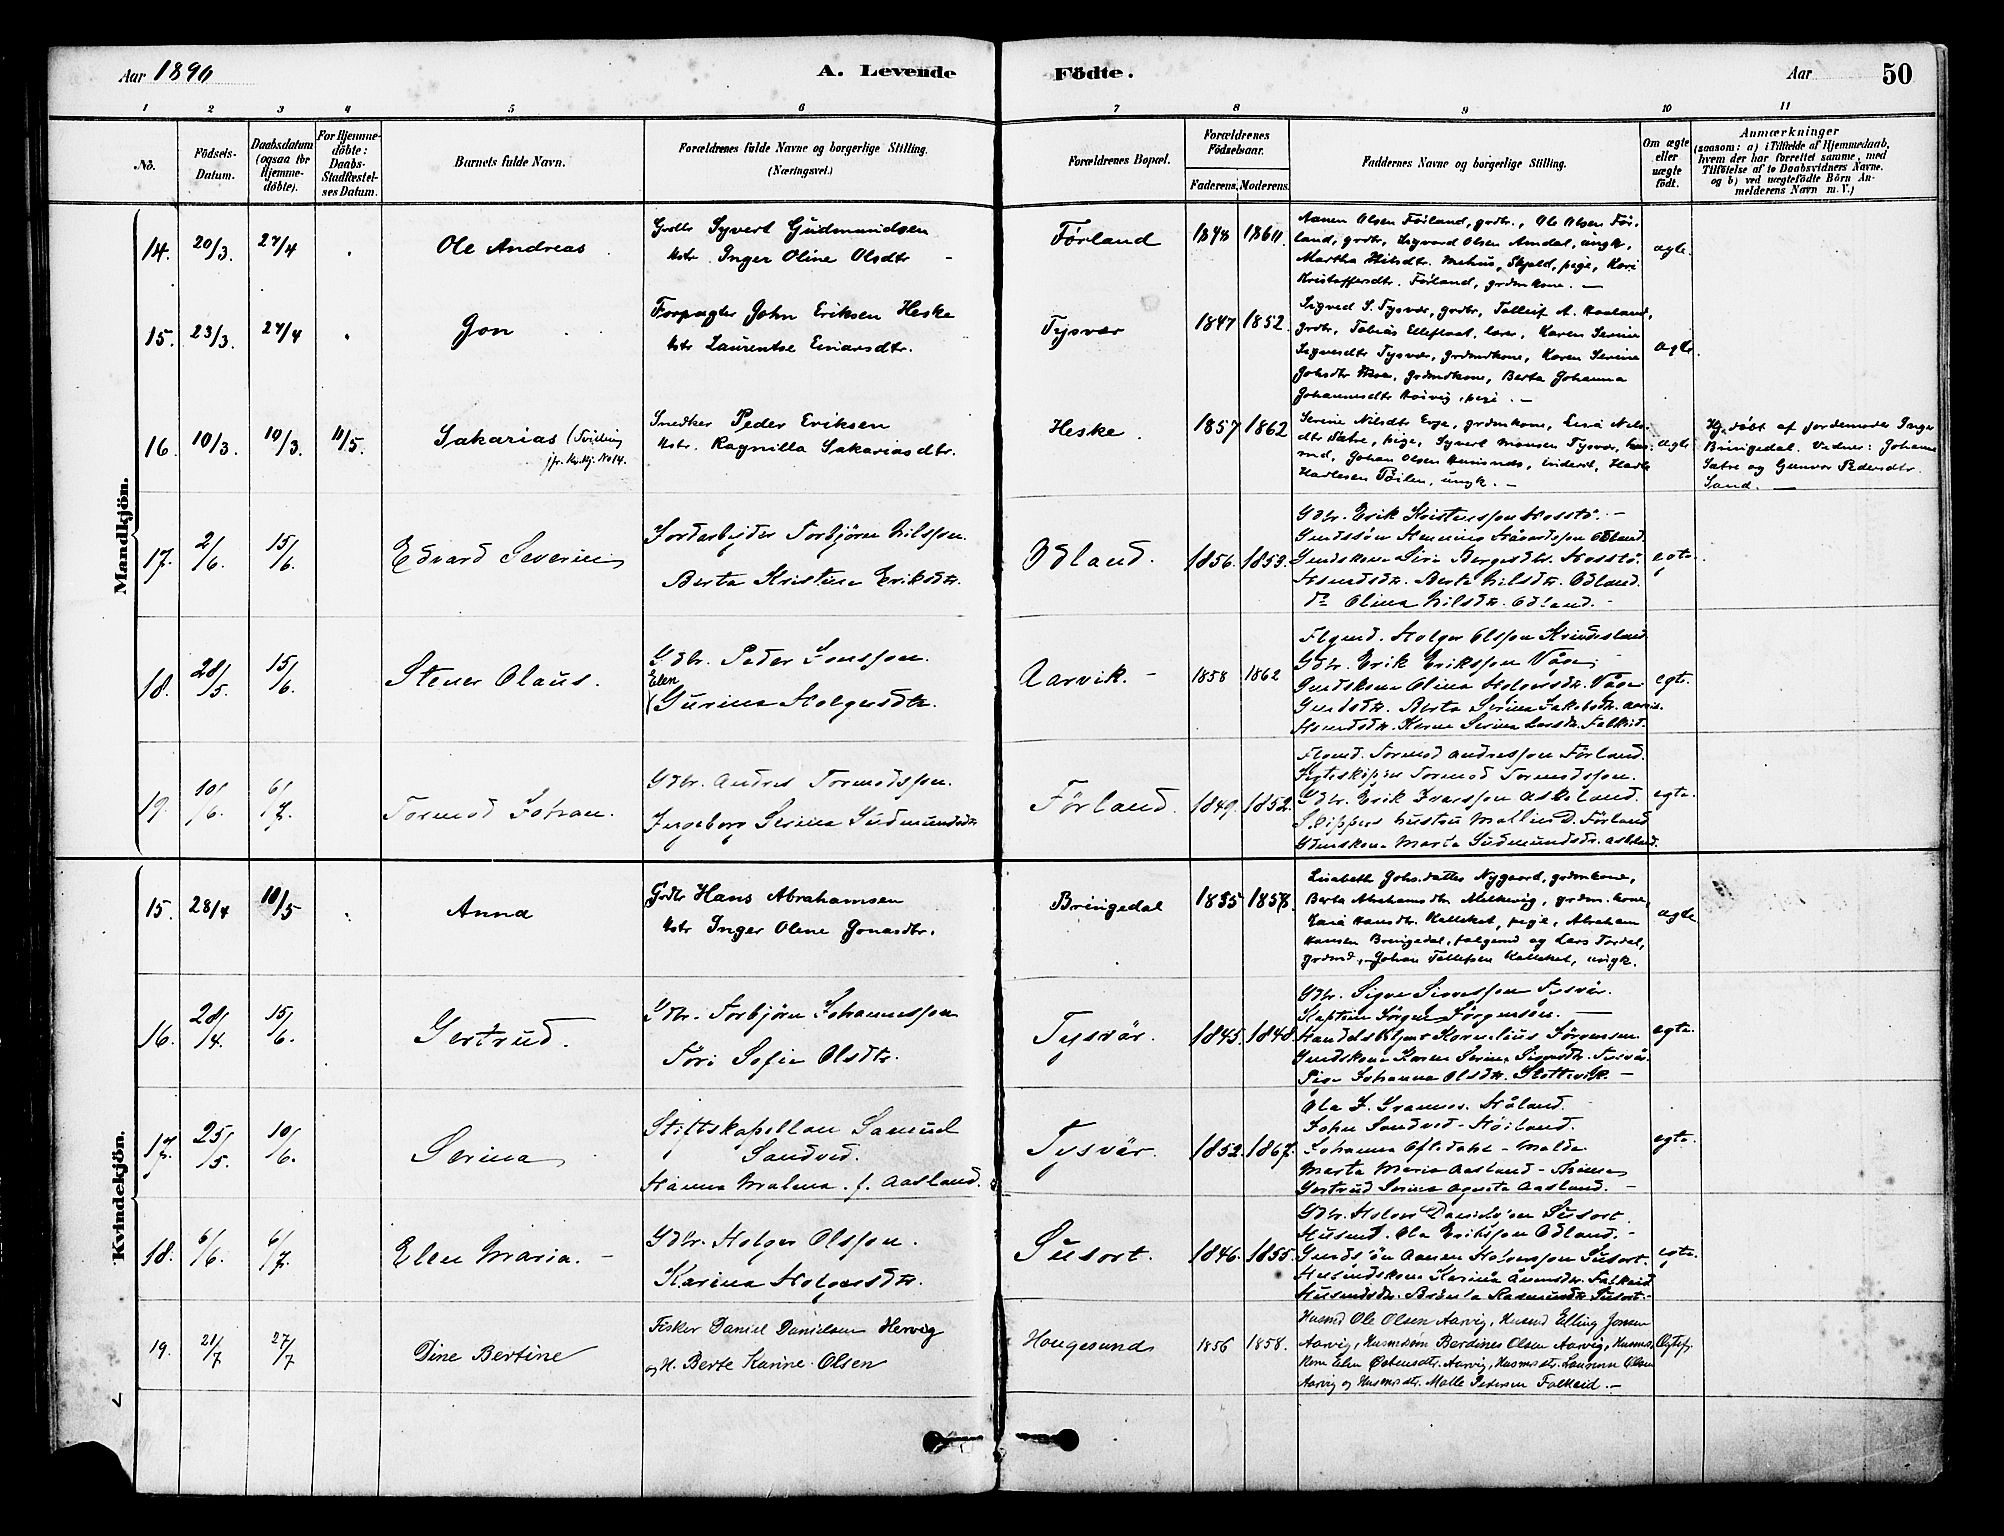 Aar 1890
A. Levende
Födte.
Aar
50
1 2 3 4 5 6 7 8 9 10 11
No.
Födsels-Datum.
Daabsdatum (ogsaa for Hjemme-döbte).
For Hjemme-döbte: Daabs-Stadfæstelses Datum.
Barnets fulde Navn.
Forældrenes fulde Navne og borgerlige Stilling. (Næringsvei.)
Forældrenes Bopæl.
Forældrenes Födselsaar.
Faderens. Moderens.
Faddernes Navne og borgerlige Stilling.
Om ægte eller uægte födt.
Anmærkninger
(saasom: a) i Tilfælde af Hjemmedaab,
hvem der har forrettet samme, med
Tilföielse af to Daabsvidners Navne.
og b) ved uægtefödte Börn An-
melderens Navn m. V.)
Mandkjön.
14. 20/3. 27/4 Ole Andreas
Grdbr Syvert Gudmundsen
Hstr. Inger Oline Olsdtr
Førland 1848 1860
Aanen Olsen Førland, grdbr., Ole Olsen Før-
land, grdbr, Sigvard Olsen Amdal, ungk,
Martha Nilsdtr. Mehus, Skjold, pige, Kari
Kristoffersdtr. Førland, grdmkone. —
ægte.
15. 23/3. 27/4 Jon
Forpagter John Eriksen Heske
Hstr Laurentse Einarsdtr.
Tysvær 1847 1852.
Sigved S. Tysvær, grdbr, Tolleif A. Haaland,
grdbr, Tobias Elleflaat, lærer, Karen Serine
Sigvesdtr Tysvær, grdmdkone, Karen Serine
Johsdtr, grdmdkone, Berta Johanna
Johannesdtr, pige. —
ægte.
16. 10/3. 10/3. 11/5. Sakarias (Tvilling
jfr. Kv.kj. No 14.
Snedker Peder Eriksen
Hstr. Ragnilla Sakariasdtr.
Heske. 1857 1862
Serine Nilsdtr, grdmkone, Lisa Nils-
dtr Sætre, pige, Syvert Monsen Tysvær, hus-
md, Johan Olsen, inderst,
ungk. —
ægte
Hj. døbt af jordemoder Inger
Bringedal. Vidner: Johanne
Sætre og Gunvor Pedersdtr.
Sand. —
17. 2/6. 15/6. Edvard Severin
Jordarbejder Torbjörn Nilsson.
Berta Kristina Eriksdtr.
Odland. 1856. 1853.
Gdbr. Erik Kristensson. —
Gmdssön Henning Odland.
Gmdskone Siri Bergesdtr.
Hsmdsdtr. Berta Nilsdtr. Odland.
do Olina Nilsdtr. Odland. -
egte.
18. 28/5. 15/6. Stener Olaus.
Gdbr. Peder Jonsson.
Elen
(Gurina Holgersdtr.
Aarvik. — 1858 1862
Flgmd. Holger Olsson
Gdbr. Erik Eriksson Våge
Gmdskone Olina Holgersdtr. Våge
Gmdsdtr. Berta Serina Jakobsdtr. Aarvik.
Hsmdsdtr. Karen Serina Larsdtr. Falkeid.
egte.
19. 10/6. 6/7. Tormod Johan.
Gdbr. Andres Tormodsson.
Ingeborg Serina Gudmundsdtr
Förland. 1849. 1852.
Flgmd. Tormod Andresson Förland.
Tormod Tormodsson.
Gdbr. Erik Ivarsson Askeland.
Skippers hustru Mallina D. Förland
Gdmskone Marta Gudmundsdtr. Askeland.
egte.
Kvindekjön.
15. 28/4 10/5 Anna
Grdbr Hans Abrahamsen
Hstr Inger Olene Jonasdtr.
Bringedal 1835 1858.
Lisabeth Johs.datter Nygaard, grdmkone,
Berta Abrahamsdtr, grdm.kone,
Hansdtr. Kalleket, pige, Abraham
Hansen Bringedal, følgemd og Lars Tordal,
grdmd, Johan Tollefsen Kalleket, ungk.
ægte
16. 28/4. 15/6. Gertrud.
Gdbr. Torbjörn Johannesson
Töri Sofie Olsdtr.
Tysvär. 1845. 1848.
Gdbr. Sigve Sigvesson Tysvär.
Kaptein Jörgen Jörgensen. —
Kornelius Jörgensen.
Gmdskone Karen Serina Sigvesdtr. Tysvär.
Pige Johanna Olsdtr. —
egte.
17. 25/5. 10/6. Serina
Stiftskapellan Samuel
Sandved.
Hanna Malena. f. Aasland.
Tysvär. 1852. 1867.
Ola J. Grannes. Håland.
John Sandved - Höiland.
Johanna Oftedahl - Malde
Marta Maria Aasland -
Gertrud Serina Agusta Aasland. -
egte.
18. 6/6. 6/7. Elen Maria. —
Gdbr. Holger Olsson.
Karina Holgersdtr.
Susort. 1846. 1855.
Gdbr. Holger Danielson Susort.
Husmd. Ola Eriksson Odland.
Gmdssön Aanen Holgersson Susort.
Husmdskone Karina Falkeid
Husmdsdtr. Rasmusdtr Susort. -
egte.
19. 21/7 27/7 Dine Bertine
Fisker Daniel Danielsen Hervig
og H. Berte Karine Olsen
Haugesund 1856 1858.
Husmd Ole Olsen Aarvig, Husmd Elling Jonsen
Aarvig, Husmdsøn Berdines Olsen Aarvig, Husmds-
kone Elen Aarvig, Husmdsdtr. Laurine Olsen
Aarvig og Husmdsdtr. Malle Pedersen Falkeid. —
Ægtef.